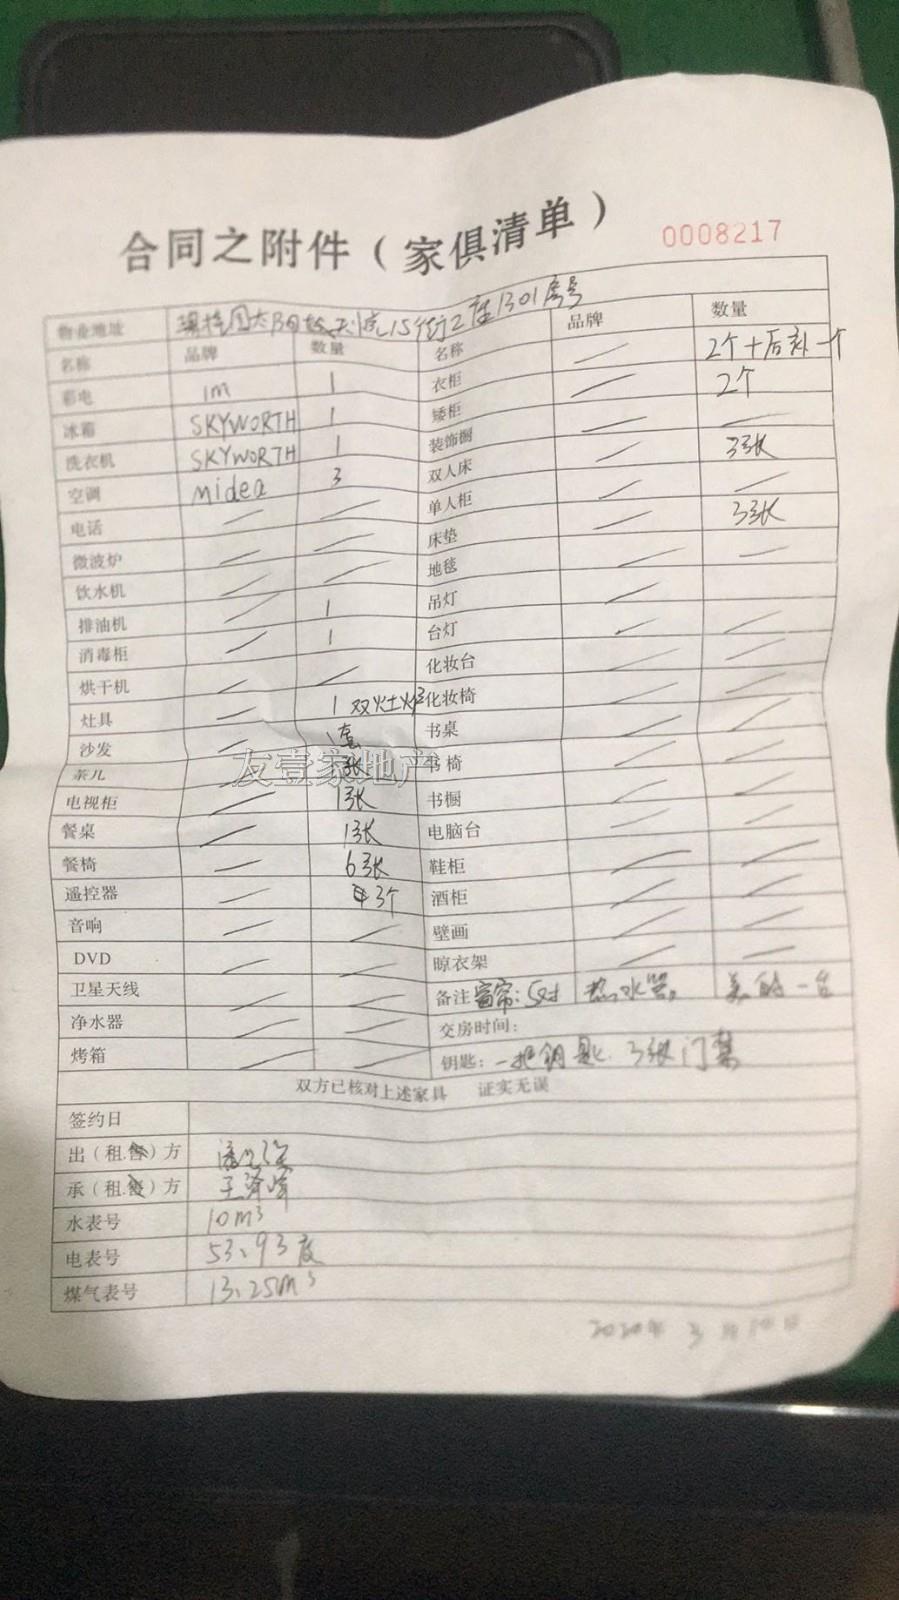 合同之附件（家俱清单）
0008217
物业地址 15街2座1301房号
名称 品牌 数量 名称 品牌 数量
彩电 1m 1 衣柜 / 2个+后补一个
冰箱 SKYWORTH 1 矮柜 / 2个
洗衣机 SKYWORTH 1 装饰橱 / /
空调 midea 3 双人床 / 3张
电话 / / 单人柜 / /
微波炉 / / 床垫 / 3张
饮水机 / / 地毯 / /
排油机 / 1 吊灯 /
消毒柜 / 1 台灯 / /
烘干机 / / 化妆台 / /
灶具 / 1 双灶炉 化妆椅 / /
沙发 / 1套 书桌 / /
茶几 张 书椅 / /
友壹家地产
电视柜 / 1张 书橱 / /
餐桌 / 1张 电脑台 / /
餐椅 / 6张 鞋柜 / /
遥控器 / 3个 酒柜 / /
音响 / / 壁画 / /
DVD / / 晾衣架 / /
卫星天线 / / 备注 窗帘:5对 热水器, 美的一台
净水器 / / 交房时间：
烤箱 / / 钥匙：一把钥匙. 3张门禁
双方已核对上述家具 证实无误
签约日
出（租.售）方
承（租.售）方 王泽峰
水表号 10m³
电表号 53.93度
煤气表号 13.25m³
2020年3月10日